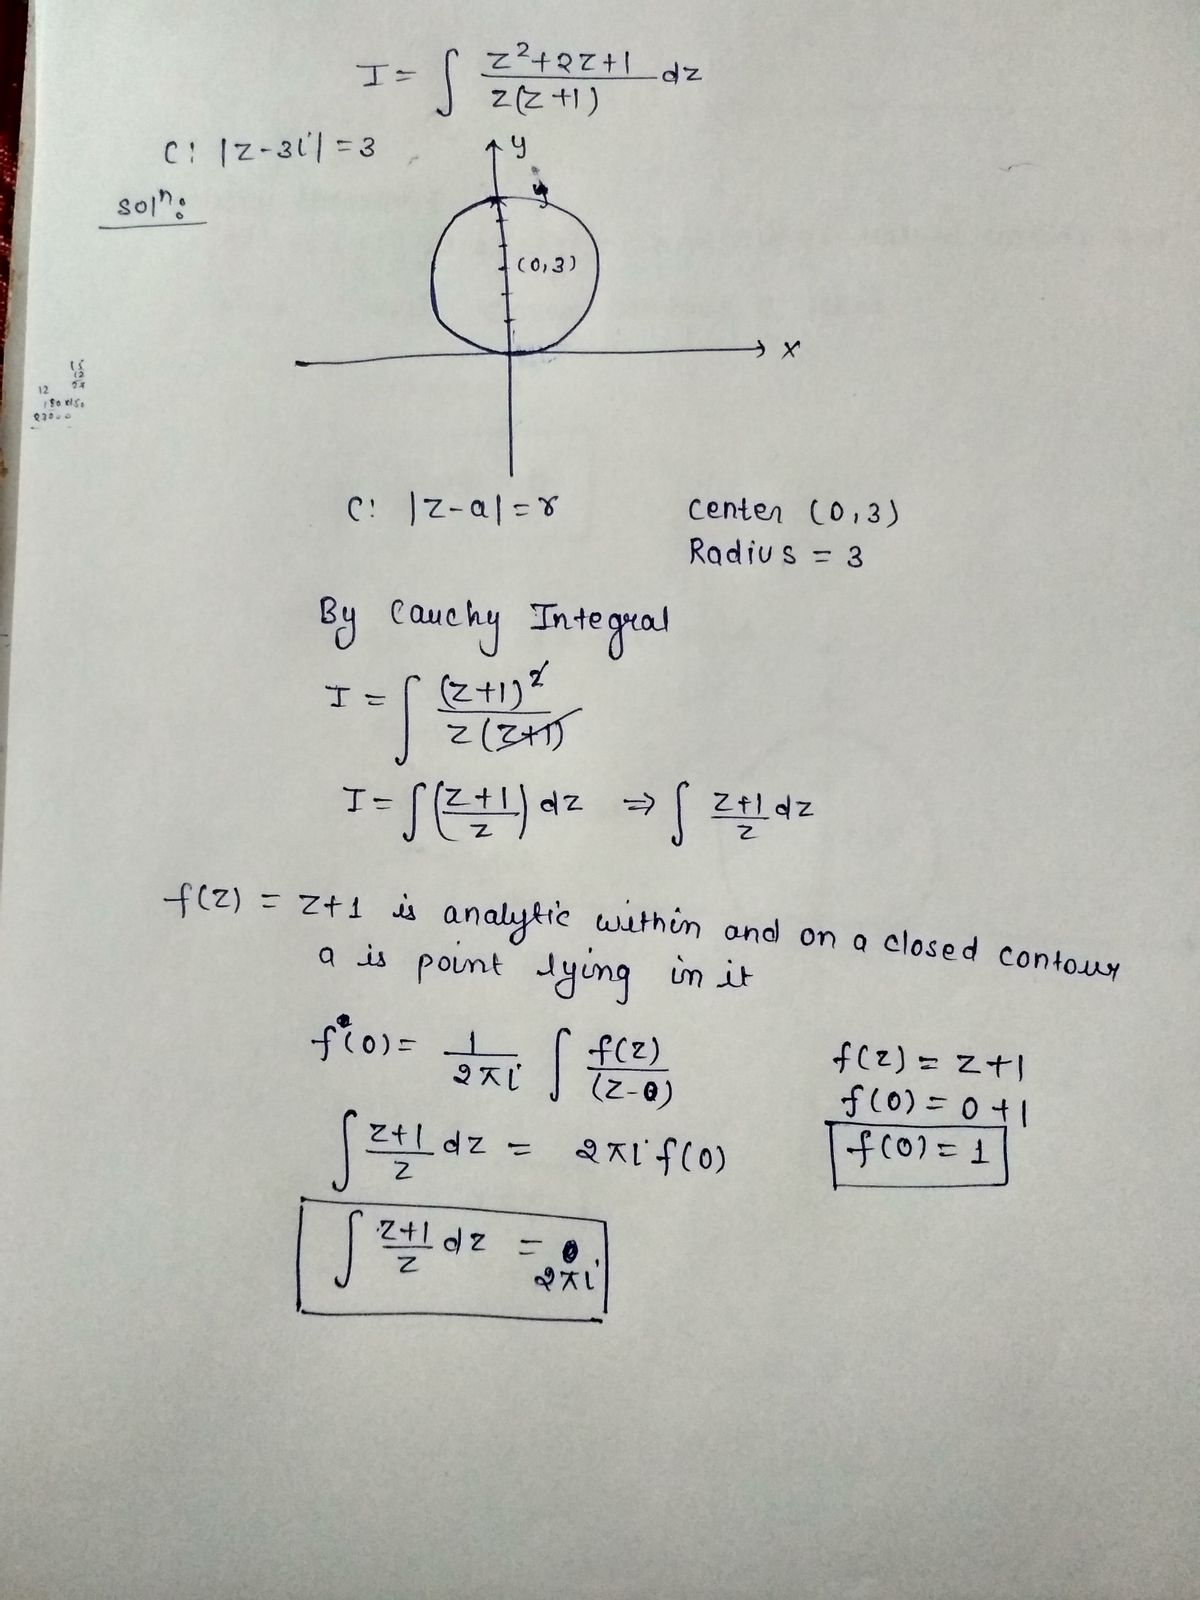 I = ∫ z²+2z+1 / z(z+1) dz
C: |z-3i| = 3
y
solⁿ:
(0,3)
x
15
12
27
12
C: |z-a| = r Center (0,3)
Radius = 3
By Cauchy Integral
I = ∫ (z+1)² / z(z+1)
I = ∫ (z+1 / z) dz ⇒ ∫ z+1 / z dz
f(z) = z+1 is analytic within and on a closed contour
a is point lying in it
f(0) = 1 / 2πi ∫ f(z) / (z-0)
f(z) = z+1
f(0) = 0+1
∫ z+1 / z dz = 2πi f(0)
f(0) = 1
∫ z+1 / z dz =
2πi